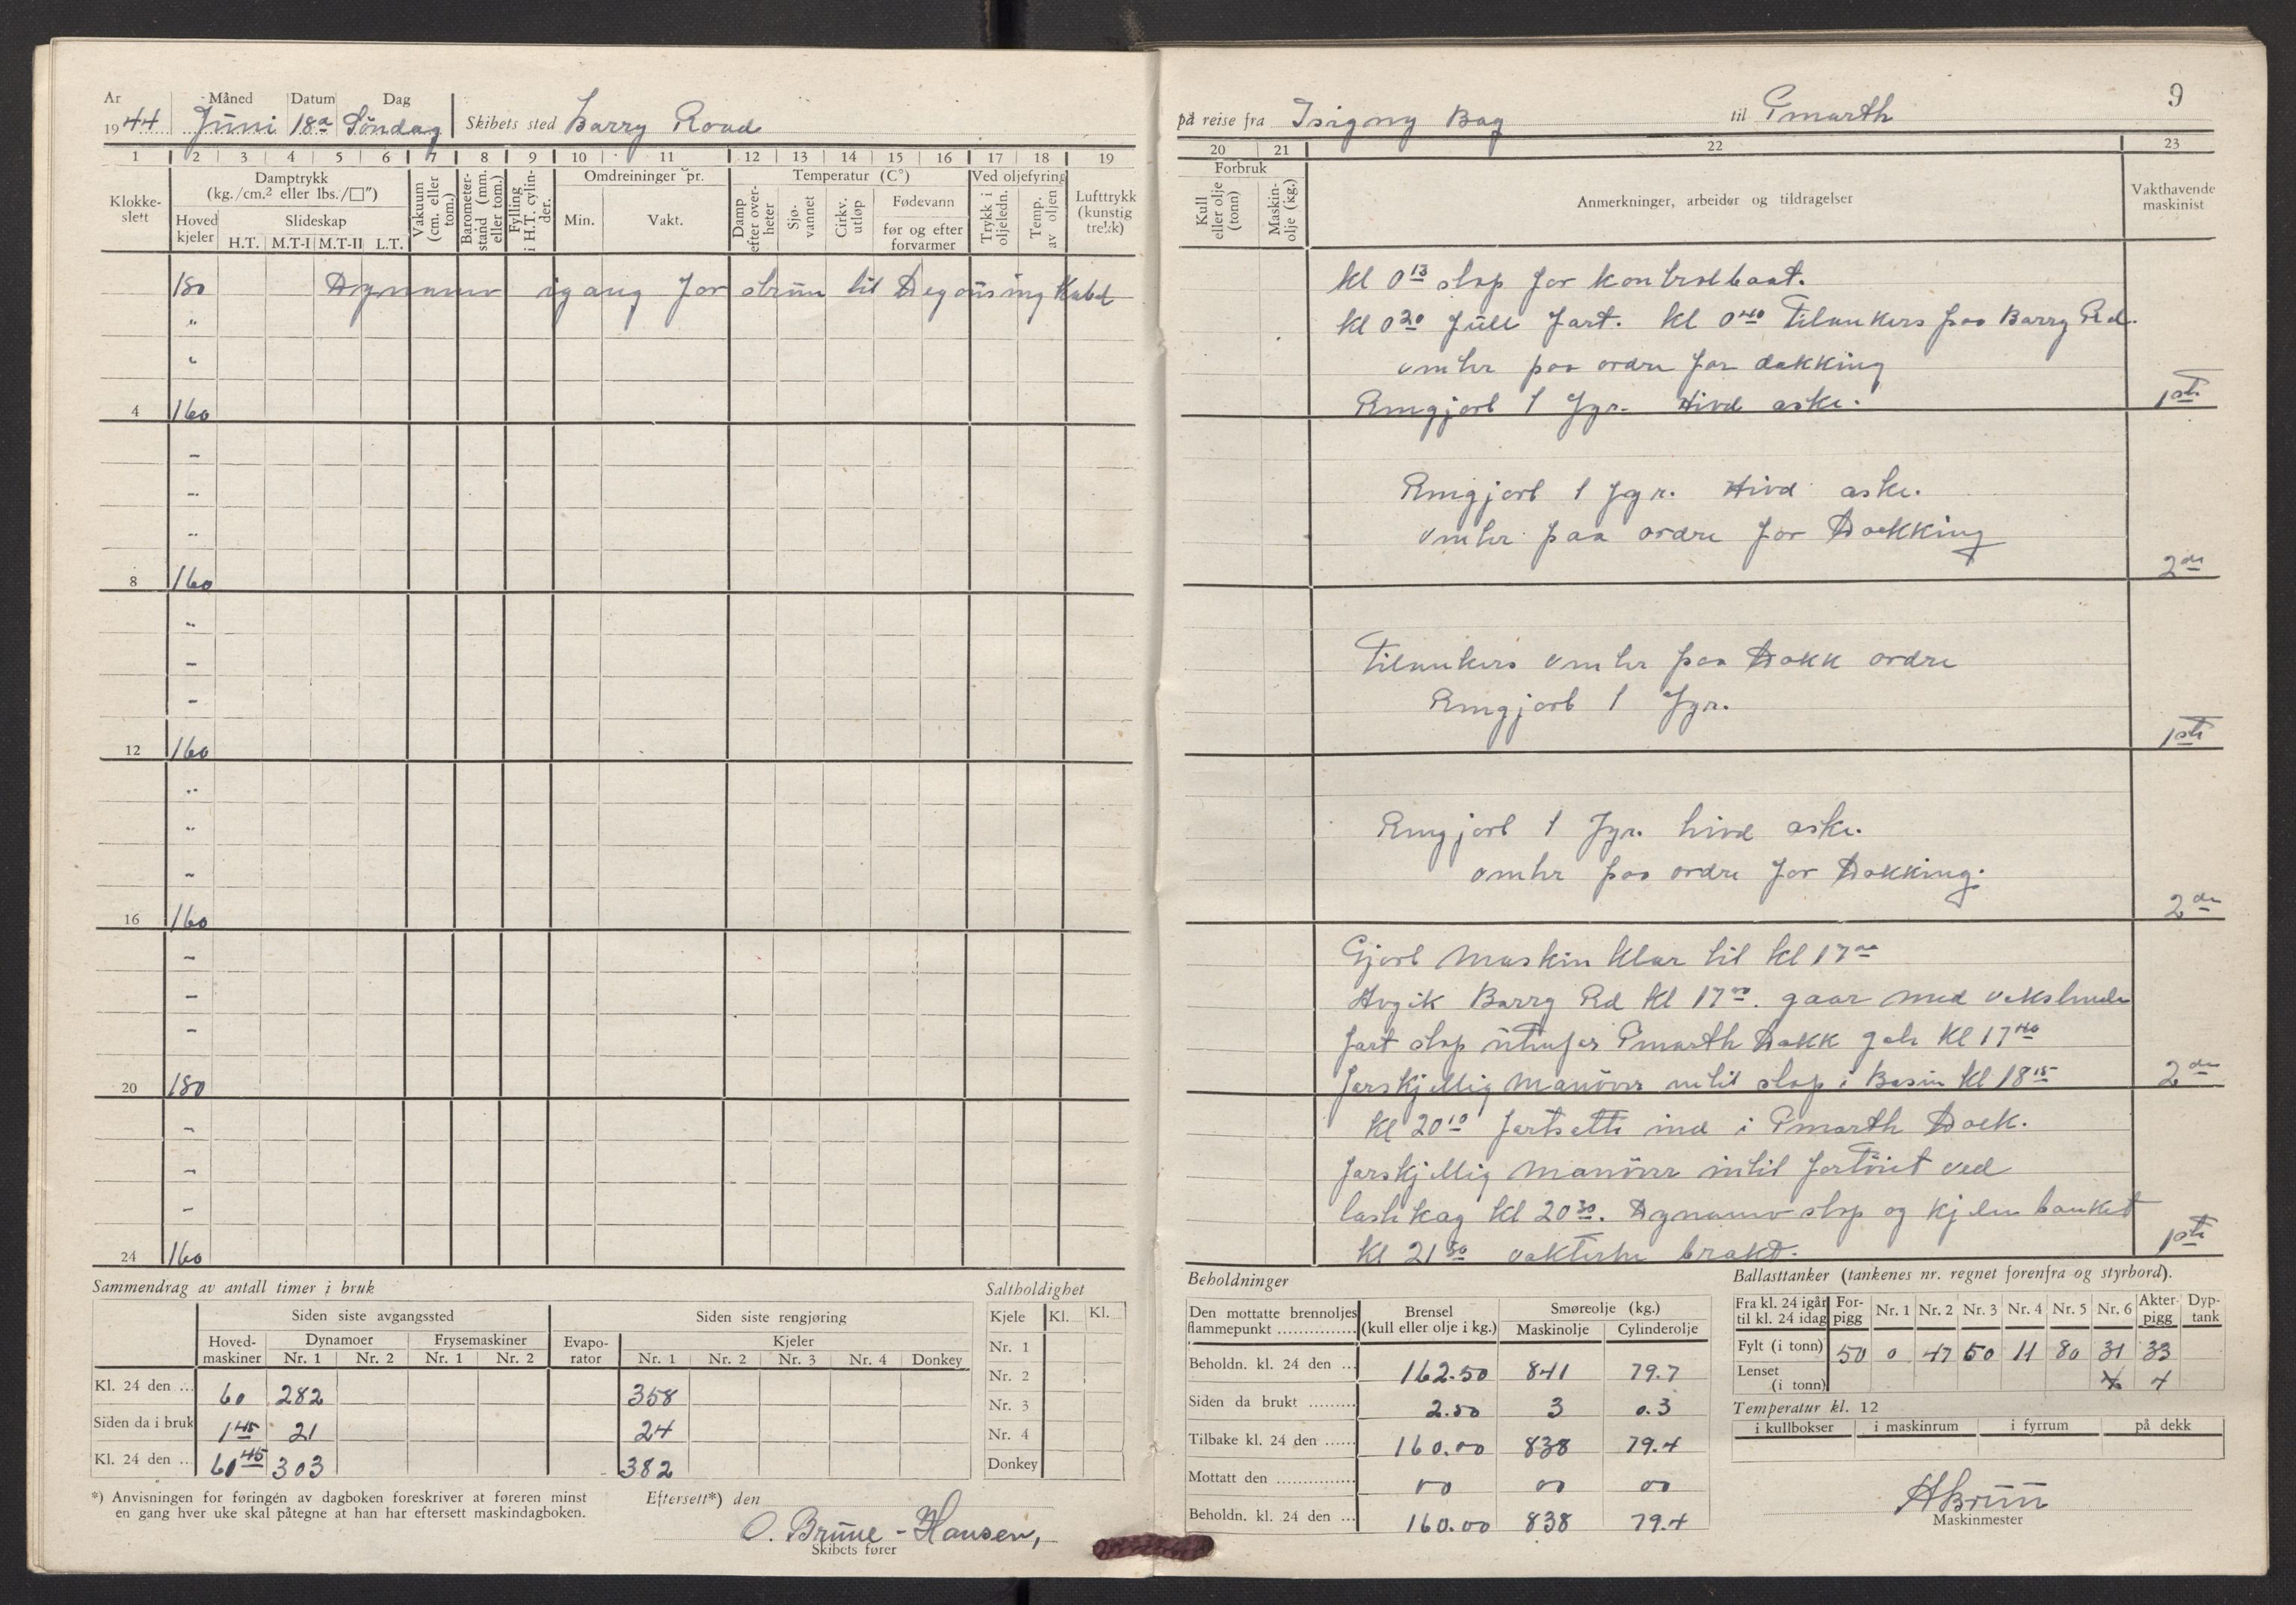 9
År Måned Datum Dag
1944 Juni 18a Søndag Skibets sted Barry Road
på reise fra Isigny Bay til Pmarth
1 2 3 4 5 6 7 8 9 10 11 12 13 14 15 16 17 18 19
20 21 22 23
Klokke-slett
Damptrykk (kg./cm.² eller lbs./□")
Hoved kjeler
Slideskap
H.T. M.T-I M.T-II L.T.
Vakuum (cm. eller tom.)
Barometer-stand (mm. eller tom.)
Fylling i H.T. cylin-der.
Omdreininger pr.
Min. Vakt.
Temperatur (C°)
Damp efter over-heter
Sjø-vannet
Cirkv. utløp
Fødevann
før og efter forvarmer
Ved oljefyring
Trykk i oljeledn.
Temp. av oljen
Lufttrykk (kunstig trekk)
Forbruk
Kull eller olje (tonn)
Maskin-olje (kg.)
Anmerkninger, arbeider og tildragelser
Vakthavende maskinist
180 Dynamo igang for strøm til Degausing Kabel
"
"
4 160
-
-
"
8 160
"
-
-
12 160
"
"
-
16 160
-
-
-
20 180
-
-
-
24 160
kl 0 13 stop for kontrolbaat.
kl 0 20 full fart. kl 0 40 Tilankers paa Barry Rd.
venter paa ordre for dokking
Rengjort 1 fyr. Hivd aske. 1ste
Rengjort 1 fyr. Hivd aske.
venter paa ordre for Dokking
2den
Tilankers venter paa Dokk ordre
Rengjort 1 fyr.
1ste
Rengjort 1 fyr. hivd aske.
venter paa ordre for Dokking.
2den
Gjort Maskin klar til kl 17 00
Avgik Barry Rd kl 17 00. gaar med vekslende
fart stop utenfor Pmarth Dokk gate kl 17 40
Forskjellig Manøver intil stop i Basin kl 18 15 2den
kl 20 10 fortsatte ind i Pmarth Dock.
forskjellig Manøver intil fortøiet ved
laste kay kl 20 30. Dynamo stop og kjelen banket
kl 21 50 vakterne brakt. 1ste
Sammendrag av antall timer i bruk
Siden siste avgangssted Siden siste rengjøring
Hoved-maskiner Dynamoer Frysemaskiner Evapo-rator Kjeler
Nr. 1 Nr. 2 Nr. 1 Nr. 2 Nr. 1 Nr. 2 Nr. 3 Nr. 4 Donkey
Kl. 24 den ... 60 282 358
Siden da i bruk 1 45 21 24
Kl. 24 den ... 60 45 303 382
Saltholdighet
Kjele Kl. Kl.
Nr. 1
Nr. 2
Nr. 3
Nr. 4
Donkey
*) Anvisningen for føringen av dagboken foreskriver at føreren minst
en gang hver uke skal påtegne at han har eftersett maskindagboken.
Eftersett*) den
O. Brune-Hansen,
Skibets fører
Beholdninger
Den mottatte brennoljes flammepunkt ............... Brensel (kull eller olje i kg.) Smøreolje (kg.)
Maskinolje Cylinderolje
Beholdn. kl. 24 den ... 162.50 841 79.7
Siden da brukt ......... 2.50 3 0.3
Tilbake kl. 24 den ...... 160.00 838 79.4
Mottatt den ............... 00 00 00
Beholdn. kl. 24 den ... 160.00 838 79.4
Ballasttanker (tankenes nr. regnet forenfra og styrbord).
Fra kl. 24 igår til kl. 24 idag For-pigg Nr. 1 Nr. 2 Nr. 3 Nr. 4 Nr. 5 Nr. 6 Akter-pigg Dyp-tank
Fylt (i tonn) 50 0 47 50 11 80 31 33
Lenset (i tonn) 4
Temperatur kl. 12
i kullbokser i maskinrum i fyrrum på dekk
ABruu
Maskinmester